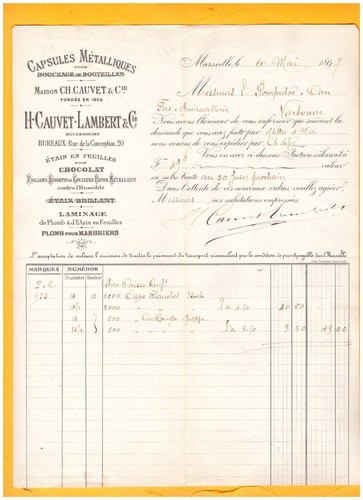 CAPSULES MÉTALLIQUES
POUR
BOUCHAGE DE BOUTEILLES
MAISON CH. CAUVET & Cie
FONDÉE EN 1855
H. CAUVET-LAMBERT & Cie
SUCCESSEURS
BUREAUX: Rue de la Conception, 20
ÉTAIN EN FEUILLES
POUR
CHOCOLAT
PAILLONS ASSORTIS DE COULEURS PAPIER MÉTALLIQUE
contre l'Humidité
ÉTAIN BRILLANT
LAMINAGE
de Plomb & d'Étain en Feuilles
PLOMB POUR MARBRIERS
Marseille, le 20 Mai 189
Messieurs L. Pompidor
Fers Quincaillerie
Narbonne
Nous avons l'honneur de vous informer que suivant la
demande que vous avez faite par lettre Mai
nous venons de vous expédier par
Vous en avez ci dessous Facture s'élevant à
F 49 valeur
en notre traite au 30 Juin prochain
Dans l'attente de vos nouveaux ordres, veuillez agréer,
Messieurs nos salutations empressées.
L'acceptation de valeurs, l'émission de traites, le paiement du transport n'annulent pas la condition de prix payable dans Marseille
MARQUES NUMÉROS
Diamètre Hauteur
Une Caisse
1000 Caps Blanches Etoile
3000 à 4.50 40 50
500
500 à 8.50 8 50 49.00